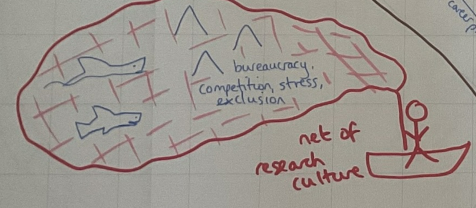 bureaucracy,
competition, stress,
exclusion
net of
research
culture